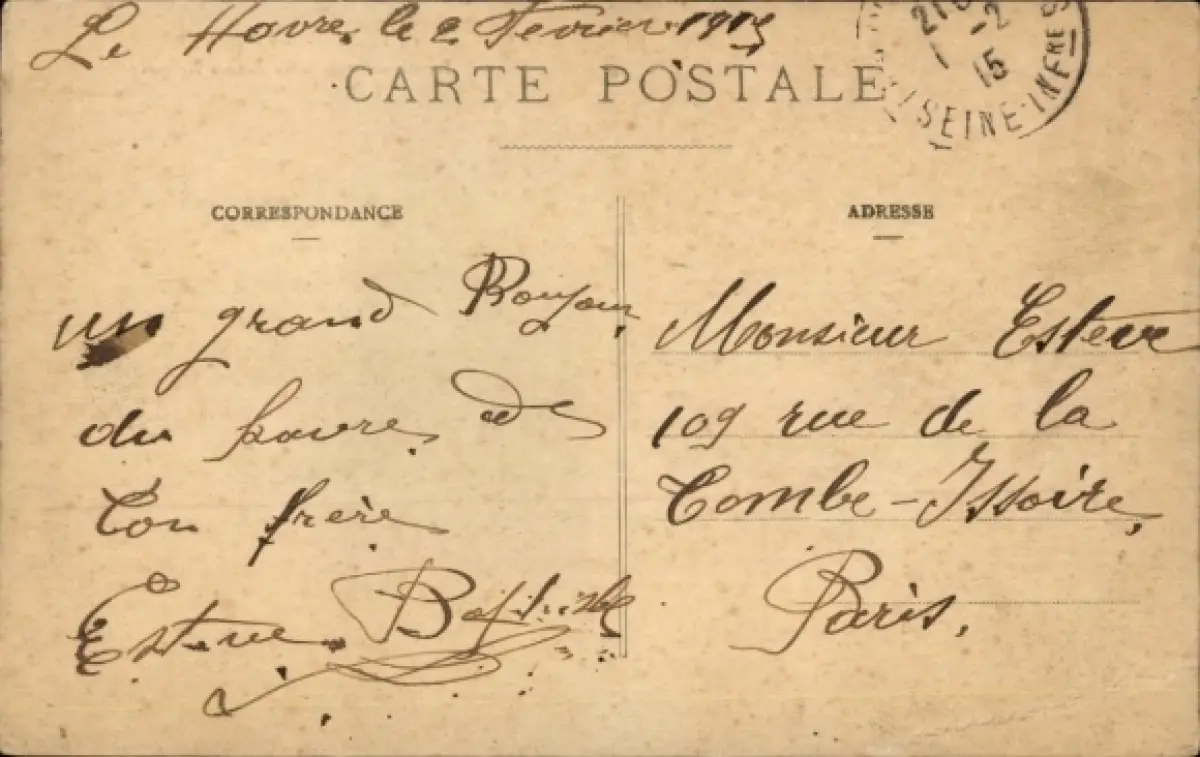 Le Havre, le 2 Fevrier 1915
CARTE POSTALE
21
-2
15
SEINE-INFRE
CORRESPONDANCE
ADRESSE
un grand Bonjour
du havre de
ton frère
Esteve
Monsieur Esteve
109 rue de la
Tombe-Issoire,
Paris.